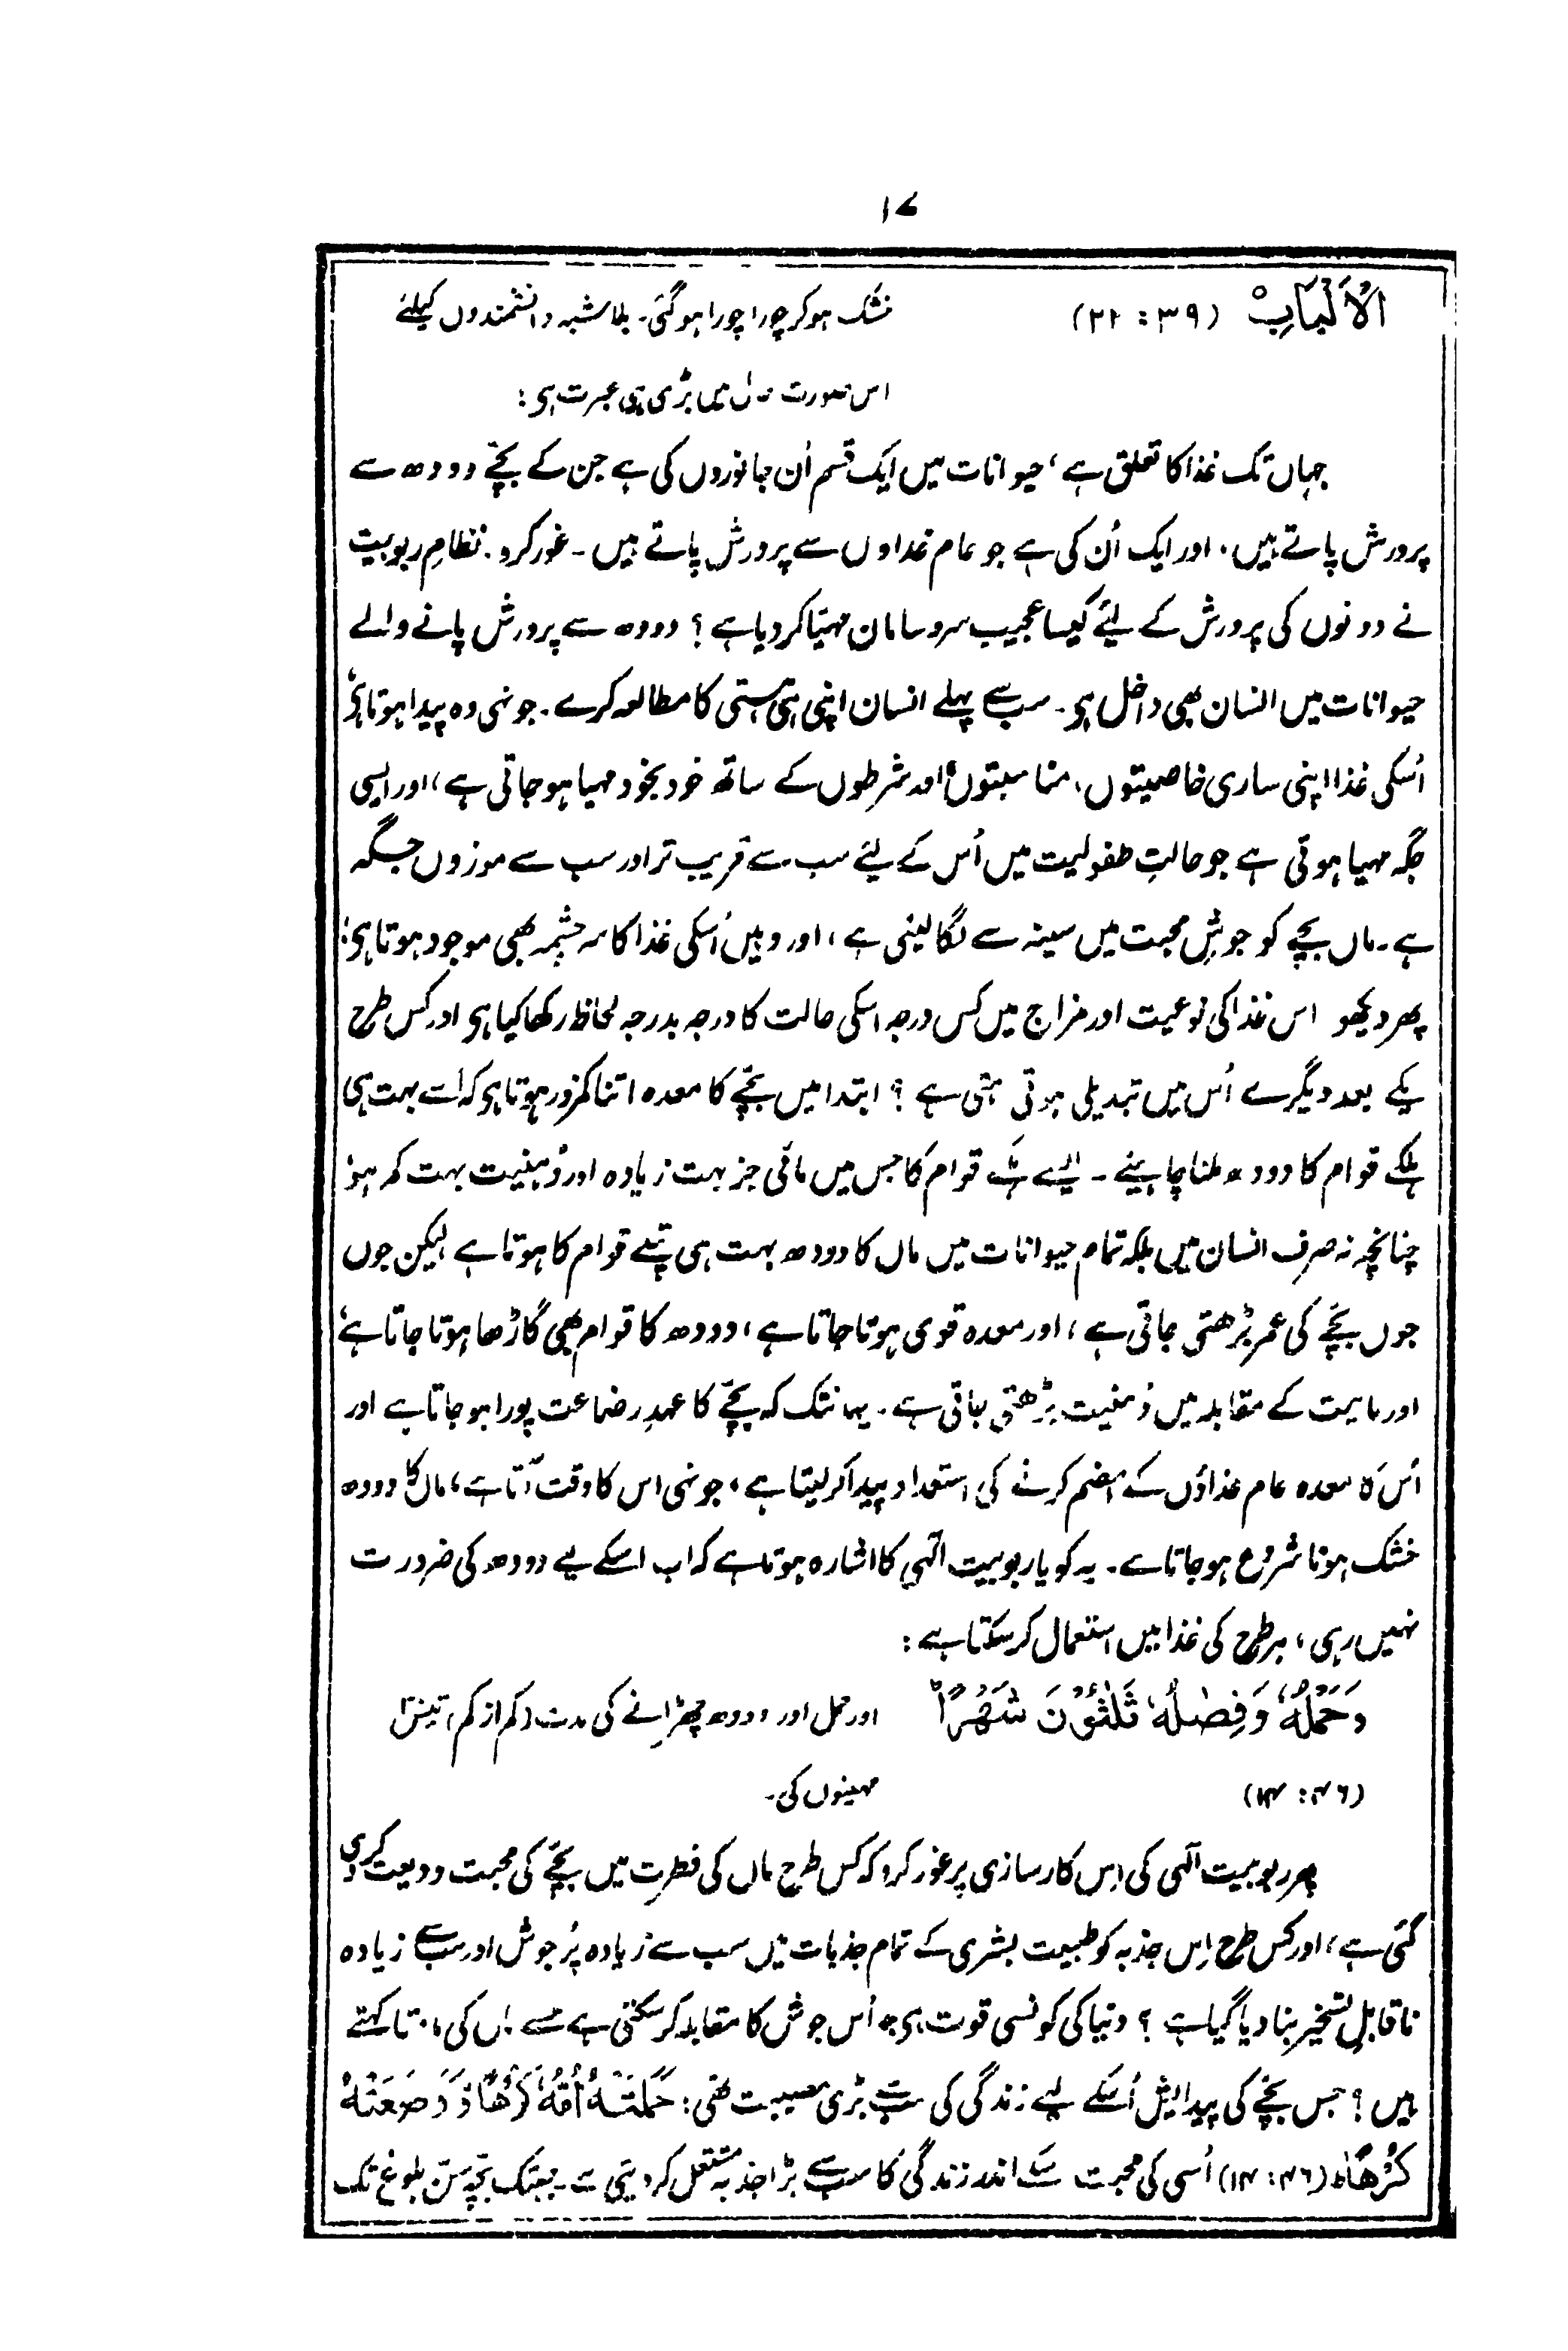 ۱۷
الْاَلْبَابِ (۳۹ : ۲۲) خشک ہوکر چورا چورا ہوگئی۔ بلاشبہ دانشمندوں کیلئے
اس صورت حال میں بڑی ہی عبرت ہی:
جہاں تک غذا کا تعلق ہے، حیوانات میں ایک قسم اُن جانوروں کی ہے جن کے بچّے دودھ سے
پرورش پاتے ہیں، اور ایک اُن کی ہے جو عام غذاوں سے پرورش پاتے ہیں۔ غور کرو۔ نظامِ ربوبیت
نے دونوں کی پرورش کے لیئے کیسا عجیب سروسامان مہیّا کردیا ہے؟ دودھ سے پرورش پانے والے
حیوانات میں انسان بھی داخل ہی۔ سب سے پہلے انسان اپنی ہی ہستی کا مطالعہ کرے۔ جونہی وہ پیدا ہوتا ہی،
اُسکی غذا اپنی ساری خاصیتوں، مناسبتوں اور شرطوں کے ساتھ خود بخود مہیا ہوجاتی ہے، اور ایسی
جگہ مہیا ہوتی ہے جو حالتِ طفولیت میں اُس کے لیئے سب سے قریب تر اور سب سے موزوں جگہ
ہے۔ ماں بچّے کو جوشِ محبت میں سینہ سے لگا لیتی ہے، اور وہیں اُسکی غذا کا سرچشمہ بھی موجود ہوتا ہی؛
پھر دیکھو اس غذا کی نوعیت اور مزاج میں کس درجہ اسکی حالت کا درجہ بدرجہ لحاظ رکھا گیا ہی اور کس طرح
یکے بعد دیگرے اُس میں تبدیلی ہوتی رہتی ہے؟ ابتدا میں بچّے کا معدہ اتنا کمزور ہوتا ہی کہ اُسے بہت ہی
ہلکے قوام کا دودھ ملنا چاہیئے۔ ایسے ہلکے قوام کا جس میں مائی جز بہت زیادہ اور دُہنیت بہت کم ہو،
چنانچہ نہ صرف انسان میں بلکہ تمام حیوانات میں ماں کا دودھ بہت ہی پتلے قوام کا ہوتا ہے لیکن جوں
جوں بچّے کی عمر بڑھتی جاتی ہے، اور معدہ قوی ہوتا جاتا ہے، دودھ کا قوام بھی گاڑھا ہوتا جاتا ہے،
اور مایت کے مقابلہ میں دُہنیت بڑھتی جاتی ہے۔ یہانتک کہ بچّے کا عہدِ رضاعت پورا ہوجاتا ہے اور
اُس کا معدہ عام غذاؤں کے ہضم کرنے کی استعداد پیدا کرلیتا ہے، جونہی اس کا وقت آتا ہے، ماں کا دودھ
خشک ہونا شروع ہوجاتا ہے۔ یہ گویا ربوبیت الٰہی کا اشارہ ہوتا ہے کہ اب اسکے لیے دودھ کی ضرورت
نہیں رہی، ہر طرح کی غذا میں استعمال کرسکتا ہے:
وَحَمْلُهٗ وَفِصٰلُهٗ ثَلٰثُوْنَ شَهْرًا اور حمل اور دودھ چھڑانے کی مدت (کم از کم) تیس
(۴۶ : ۱۴) مہینوں کی۔
پھر ربوبیت الٰہی کی اِس کارسازی پر غور کرو کہ کس طرح ماں کی فطرت میں بچّے کی محبت ودیعت کردی
گئی ہے، اور کس طرح اِس جذبہ کو طبیعت بشری کے تمام جذبات میں سب سے زیادہ پُرجوش اور سب سے زیادہ
ناقابلِ تسخیر بنا دیا گیا ہے؟ دنیا کی کونسی قوت ہی جو اُس جوش کا مقابلہ کرسکتی ہے جسے ماں کی مامتا کہتے
ہیں؟ جس بچّے کی پیدائش اُسکے لیے زندگی کی سب سے بڑی مصیبت تھی: حَمَلَتْهُ اُمُّهٗ كُرْهًا وَّ وَضَعَتْهُ
كُرْهًا (۴۶ : ۱۴) اُسی کی محبت اسکے اندر زندگی کا سب سے بڑا جذبہ مشتعل کردیتی ہے۔ جبتک بچّہ سن بلوغ تک